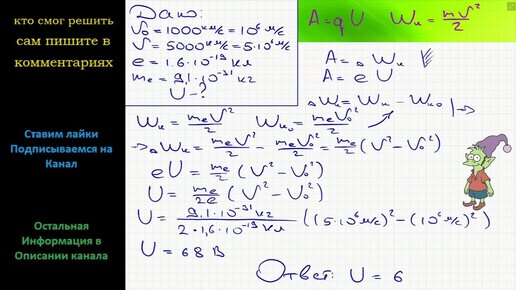 кто смог решить
сам пишите в
комментариях
Ставим лайки
Подписываемся на
Канал
Остальная
Информация в
Описании канала
Дано:
V₀ = 1000 км/с = 10⁶ м/с
V = 5000 км/с = 5·10⁶ м/с
e = 1.6·10⁻¹⁹ Кл
mₑ = 9,1·10⁻³¹ кг
U - ?
A = qU Wк = mV²/2
A = ΔWк
A = eU
ΔWк = Wк - Wк₀
Wк = mₑV²/2 Wк₀ = mₑV₀²/2
→ ΔWк = mₑV²/2 - mₑV₀²/2 = mₑ/2 (V² - V₀²)
eU = mₑ/2 (V² - V₀²)
U = mₑ/2e (V² - V₀²)
U = 9,1·10⁻³¹ кг / 2·1,6·10⁻¹⁹ Кл ((5·10⁶ м/с)² - (10⁶ м/с)²)
U = 68 В
Ответ: U = 6